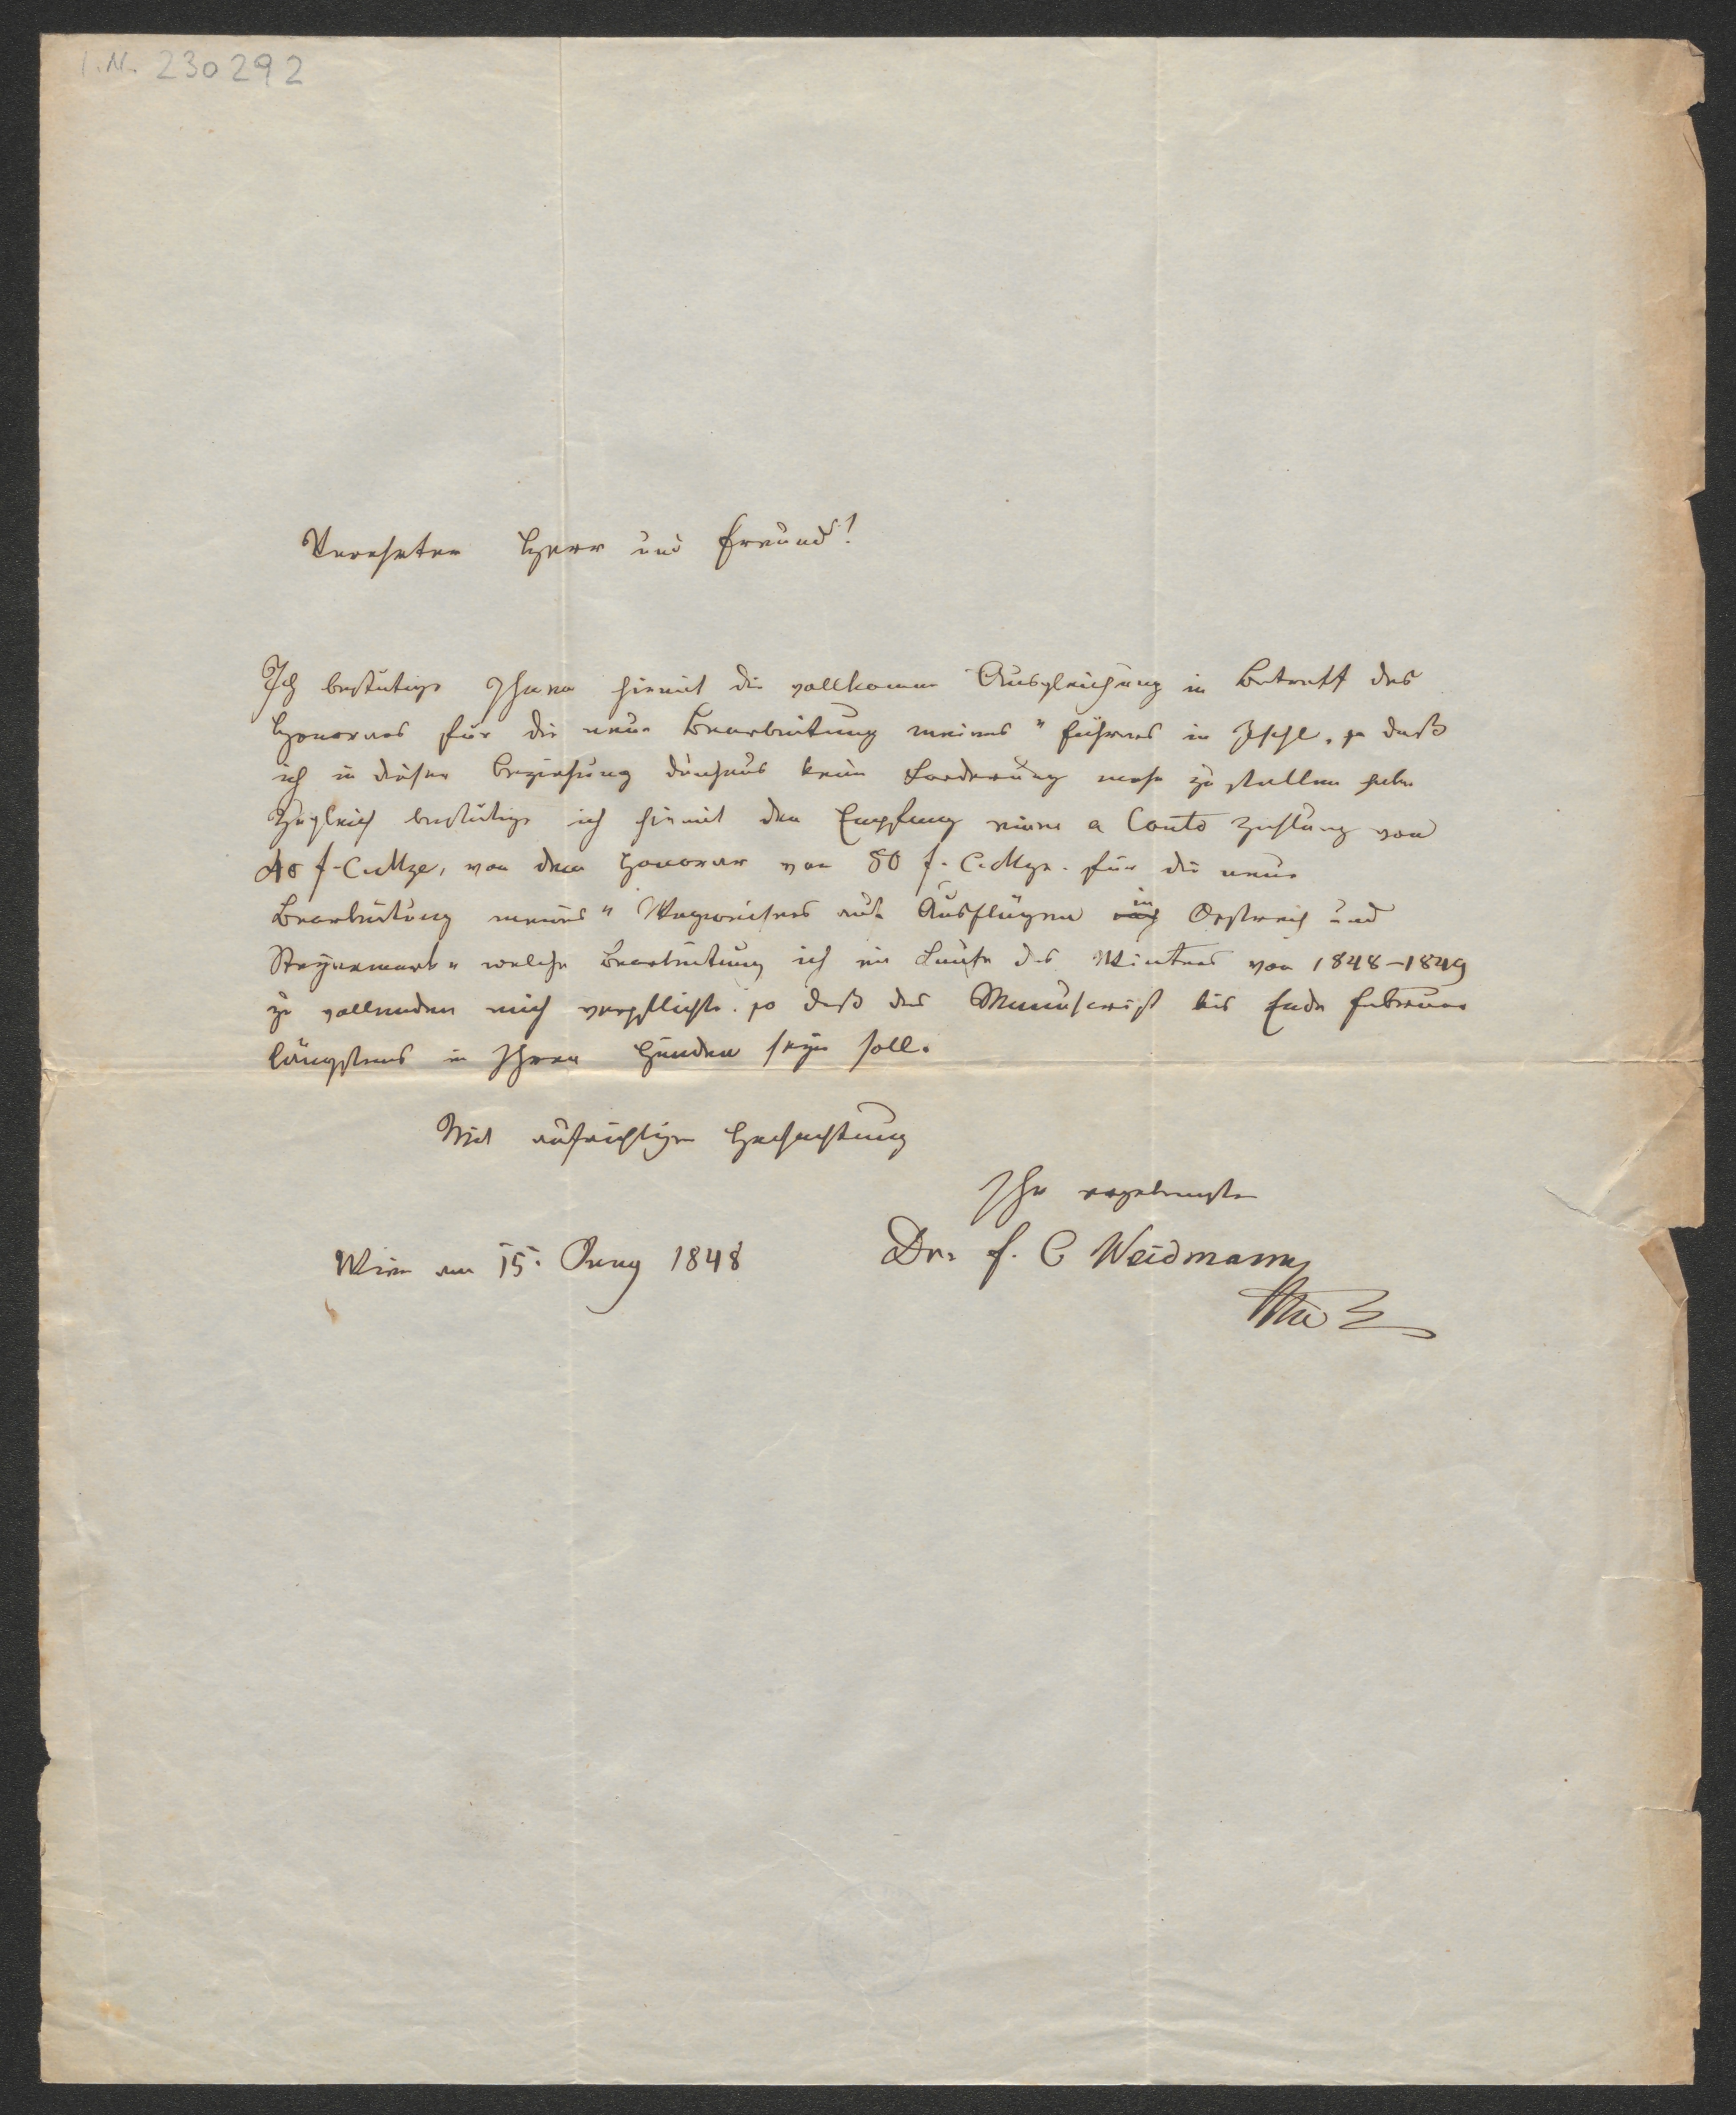 I.N. 230292
Verehrter Herr und Freund!
Ich bestätige Ihnen hiemit die vollkomne Ausgleichung in Betreff des
Honorars für die neue Bearbeitung meines "Führers in Ischl, so daß
ich in dieser Beziehung durchaus keine Forderung mehr zu stellen habe
Zugleich bestätige ich hiemit den Empfang einer a Conto Zahlung von
40 f. C. Mze, von dem Honorar von 80 f. C. Mze. für die neue
Bearbeitung meines "Wegweisers auf Ausflügen in Oestreich und
Steyermark" welche Bearbeitung ich im Laufe des Winters von 1848-1849
zu vollenden mich verpflichte. so daß das Manuscript bis Ende Februar
längstens in Ihren Händen seyn soll.
Mit aufrichtiger Hochachtung
Ihr ergebenster
Wien am 15. Juny 1848 Dr. F. C Weidmann